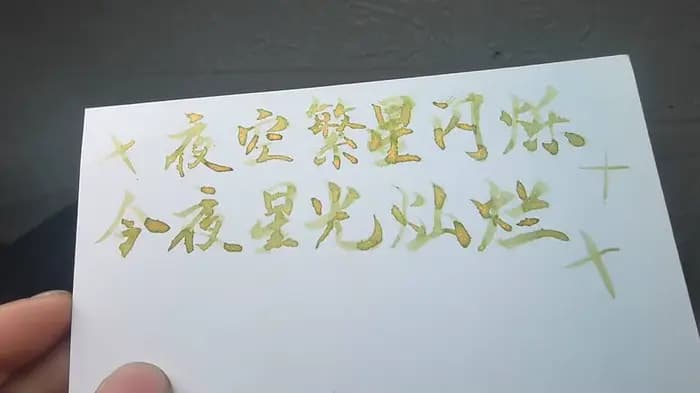 夜空繁星闪烁
今夜星光灿烂